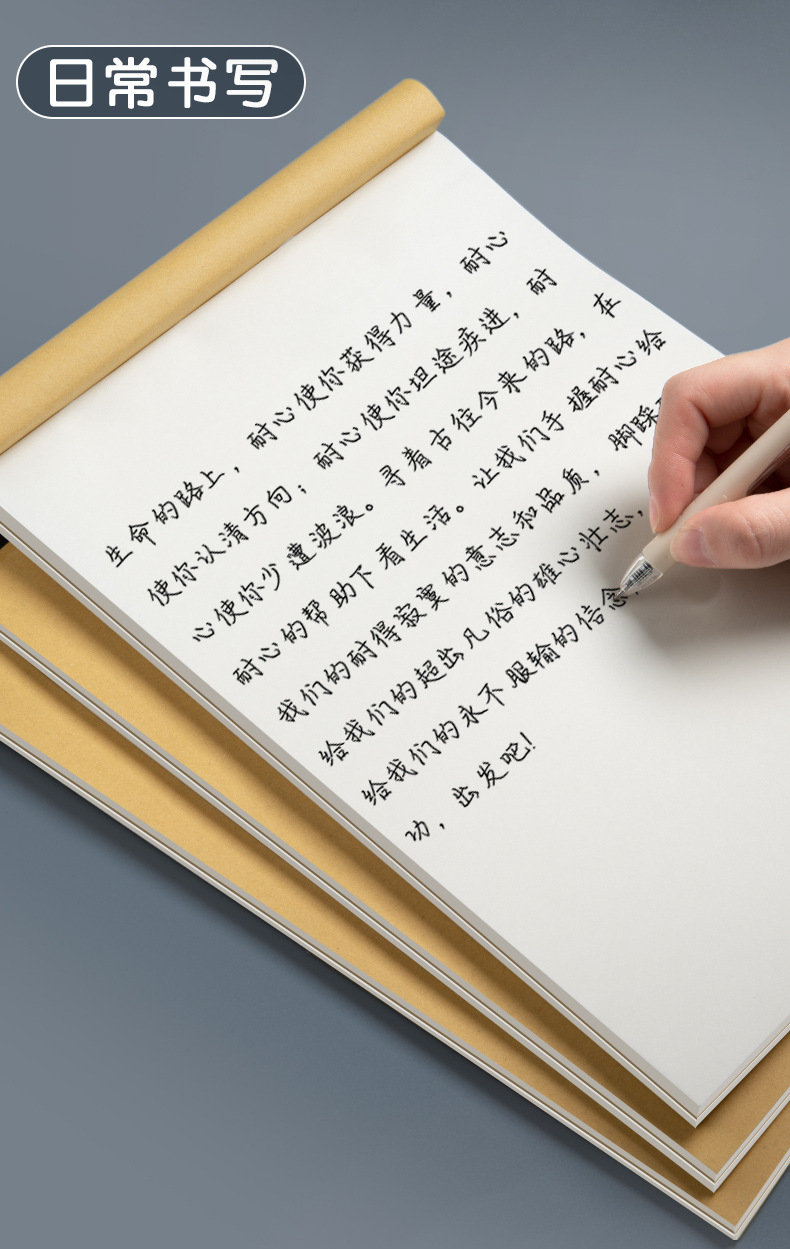 日常书写
生命的路上，耐心使你获得力量，耐心
使你认清方向；耐心使你坦途疾进，耐
心使你少遭波浪。寻着古往今来的路，在
耐心的帮助下看生活。让我们手握耐心给
我们的耐得寂寞的意志和品质，脚踩
给我们的超出凡俗的雄心壮志，
给我们的永不服输的信念，
功，出发吧！